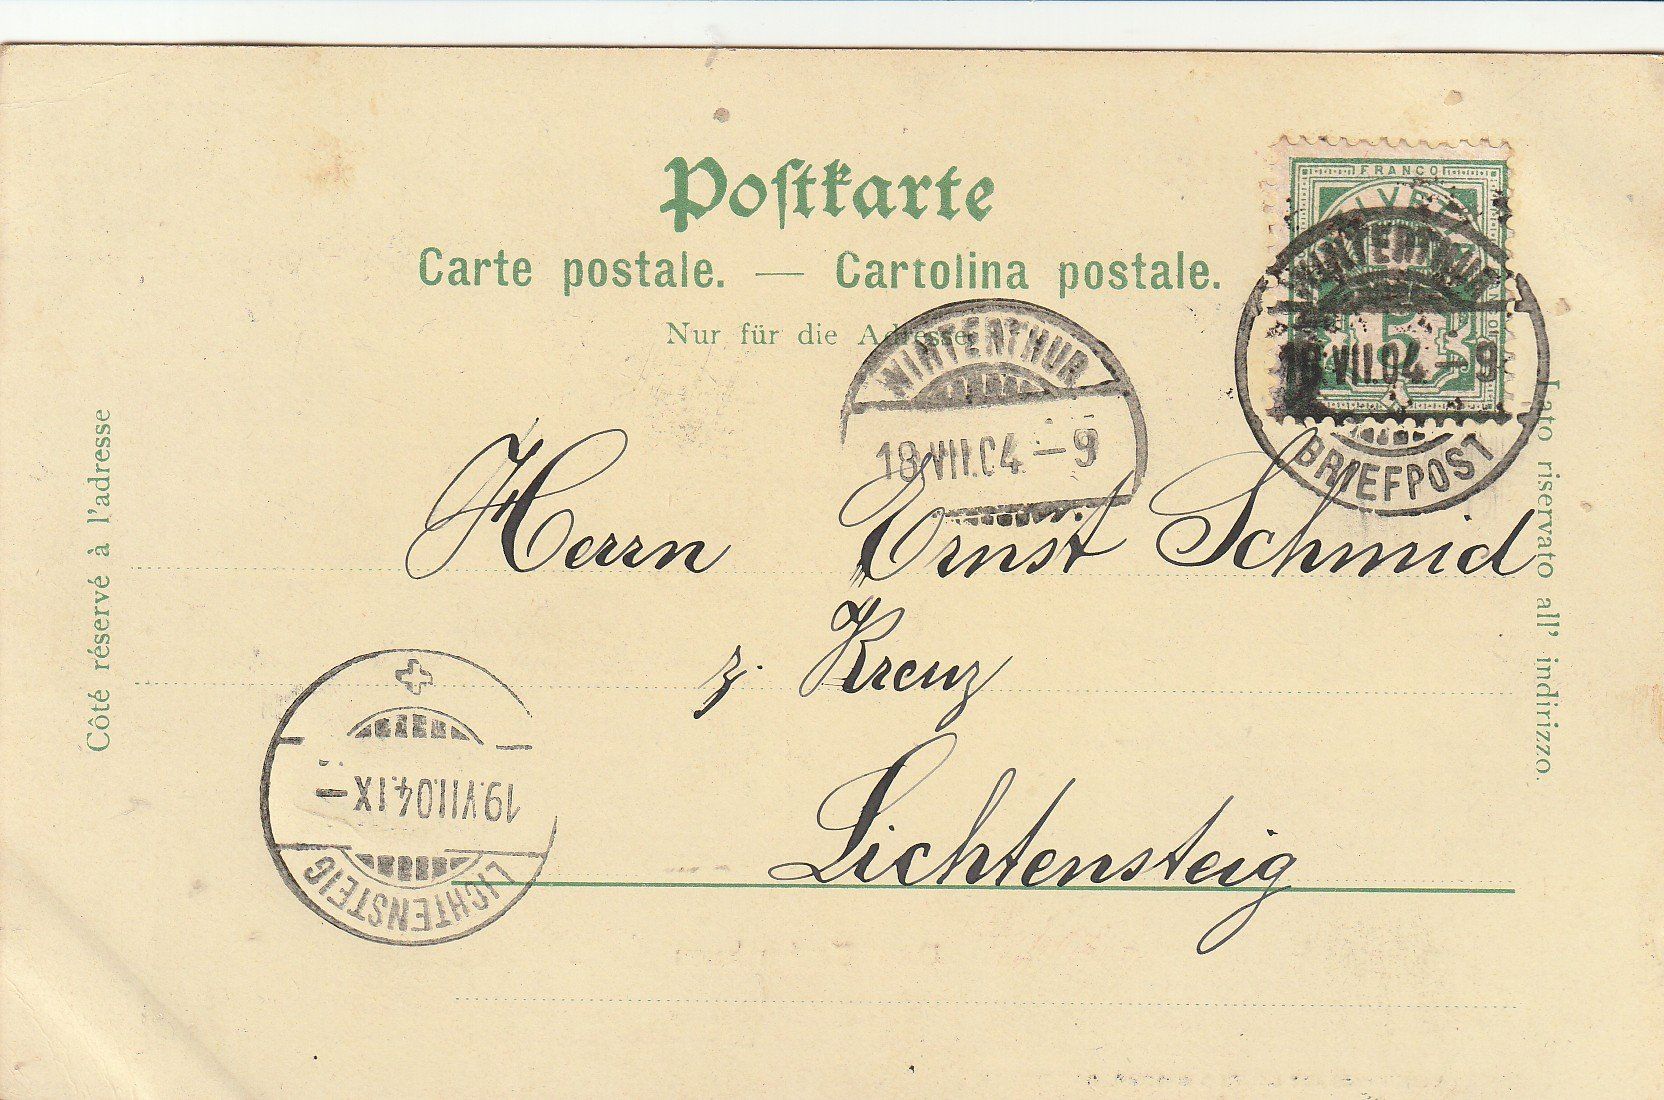 Postkarte
Carte postale. — Cartolina postale.
Nur für die Adresse
FRANCO
WINTERTHUR
18.VII.04.-9
BRIEFPOST
5
WINTERTHUR
18.VII.04.-9
Côté réservé à l'adresse
Lato riservato all' indirizzo.
Herrn Ernst Schmid
z. Kreuz
Lichtensteig
19.VII.04.IX-
LICHTENSTEIG